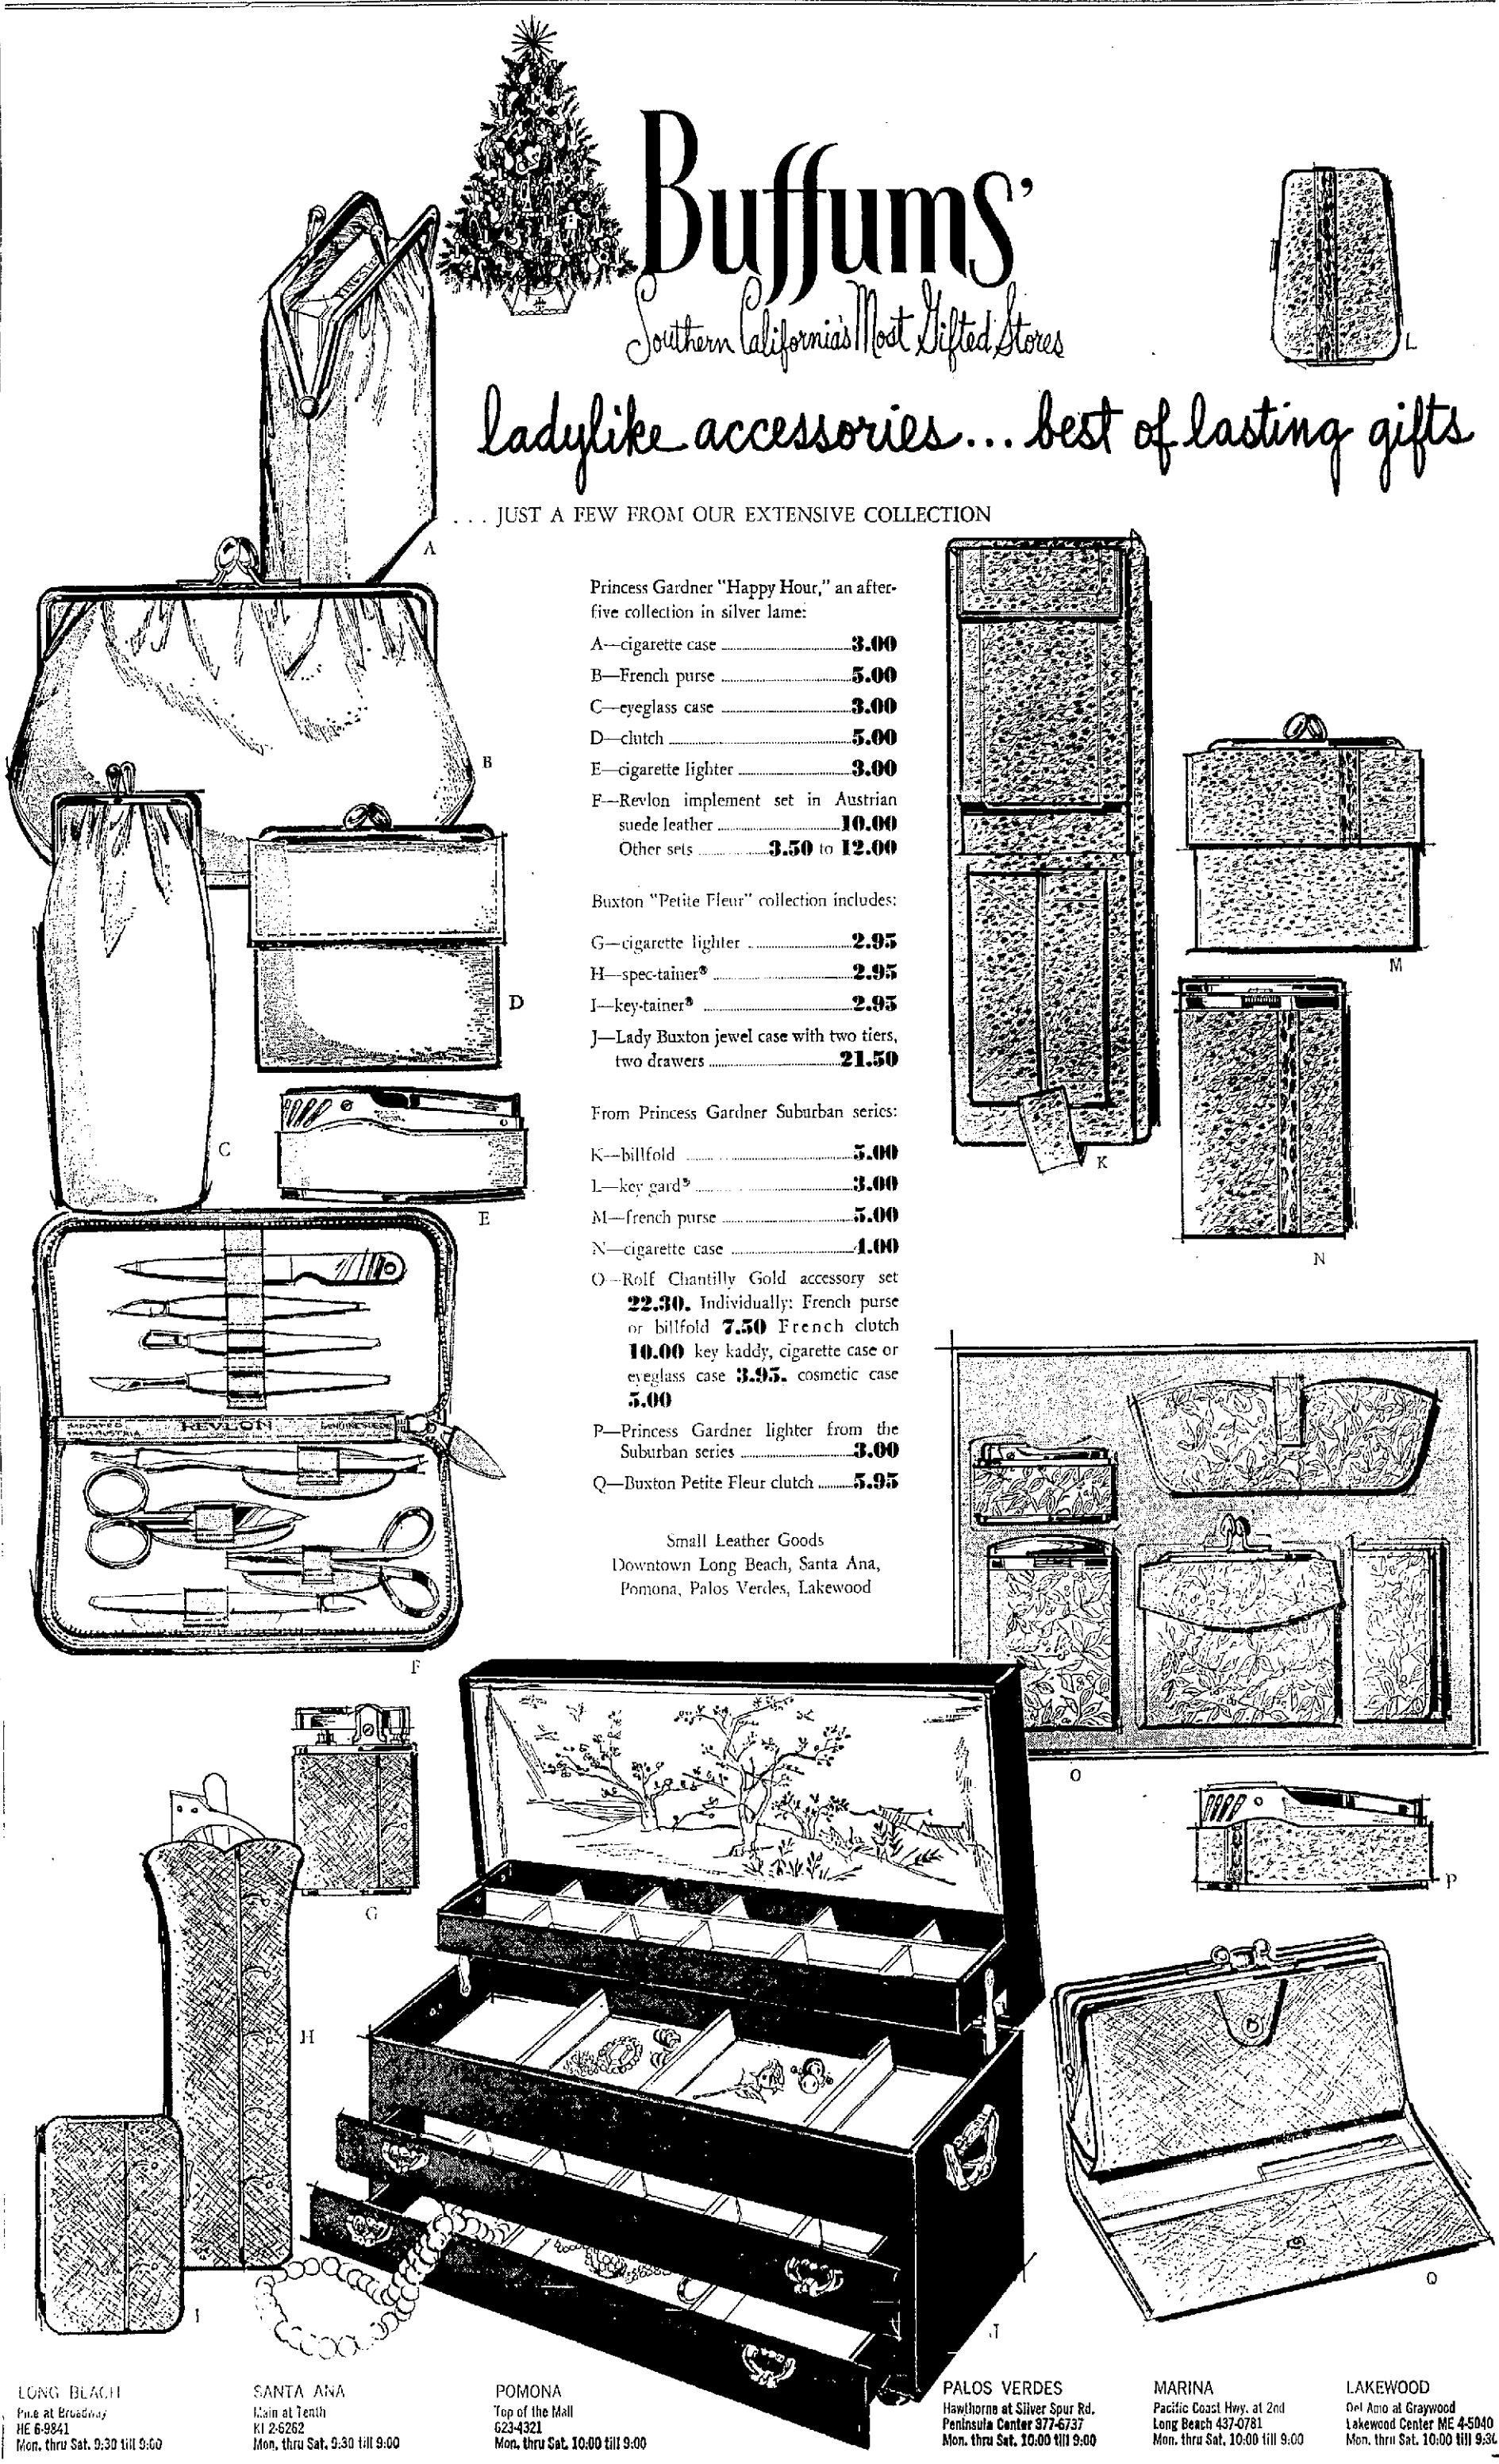 Buffums'
Southern California's Most Gifted Stores
ladylike accessories... best of lasting gifts
... JUST A FEW FROM OUR EXTENSIVE COLLECTION
Princess Gardner "Happy Hour," an after-
five collection in silver lame:
A—cigarette case 3.00
B—French purse 5.00
C—eyeglass case 3.00
D—clutch 5.00
E—cigarette lighter 3.00
F—Revlon implement set in Austrian
suede leather 10.00
Other sets 3.50 to 12.00
Buxton "Petite Fleur" collection includes:
G—cigarette lighter 2.95
H—spec-tainer® 2.95
I—key-tainer® 2.95
J—Lady Buxton jewel case with two tiers,
two drawers 21.50
From Princess Gardner Suburban series:
K—billfold 5.00
L—key gard® 3.00
M—french purse 5.00
N—cigarette case 4.00
O—Rolf Chantilly Gold accessory set
22.30. Individually: French purse
or billfold 7.50 French clutch
10.00 key kaddy, cigarette case or
eyeglass case 3.95. cosmetic case
5.00
P—Princess Gardner lighter from the
Suburban series 3.00
Q—Buxton Petite Fleur clutch 5.95
Small Leather Goods
Downtown Long Beach, Santa Ana,
Pomona, Palos Verdes, Lakewood
A
B
C
D
E
REVLON
F
G
H
I
J
K
L
M
N
O
P
Q
LONG BEACH
Pine at Broadway
HE 6-9841
Mon. thru Sat. 9:30 till 9:00
SANTA ANA
Main at Tenth
KI 2-6262
Mon. thru Sat. 9:30 till 9:00
POMONA
Top of the Mall
623-4321
Mon. thru Sat. 10:00 till 9:00
PALOS VERDES
Hawthorne at Silver Spur Rd.
Peninsula Center 377-6737
Mon. thru Sat. 10:00 till 9:00
MARINA
Pacific Coast Hwy. at 2nd
Long Beach 437-0781
Mon. thru Sat. 10:00 till 9:00
LAKEWOOD
Del Amo at Graywood
Lakewood Center ME 4-5040
Mon. thru Sat. 10:00 till 9:30